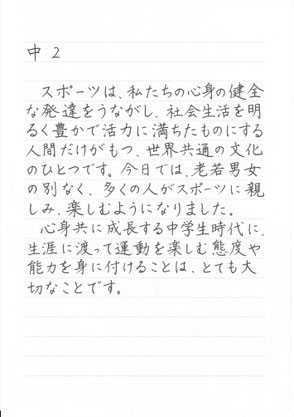 中２
スポーツは、私たちの心身の健全
な発達をうながし、社会生活を明
るく豊かで活力に満ちたものにする
人間だけがもつ、世界共通の文化
のひとつです。今日では、老若男女
の別なく、多くの人がスポーツに親
しみ、楽しむようになりました。
心身共に成長する中学生時代に、
生涯に渡って運動を楽しむ態度や
能力を身に付けることは、とても大
切なことです。